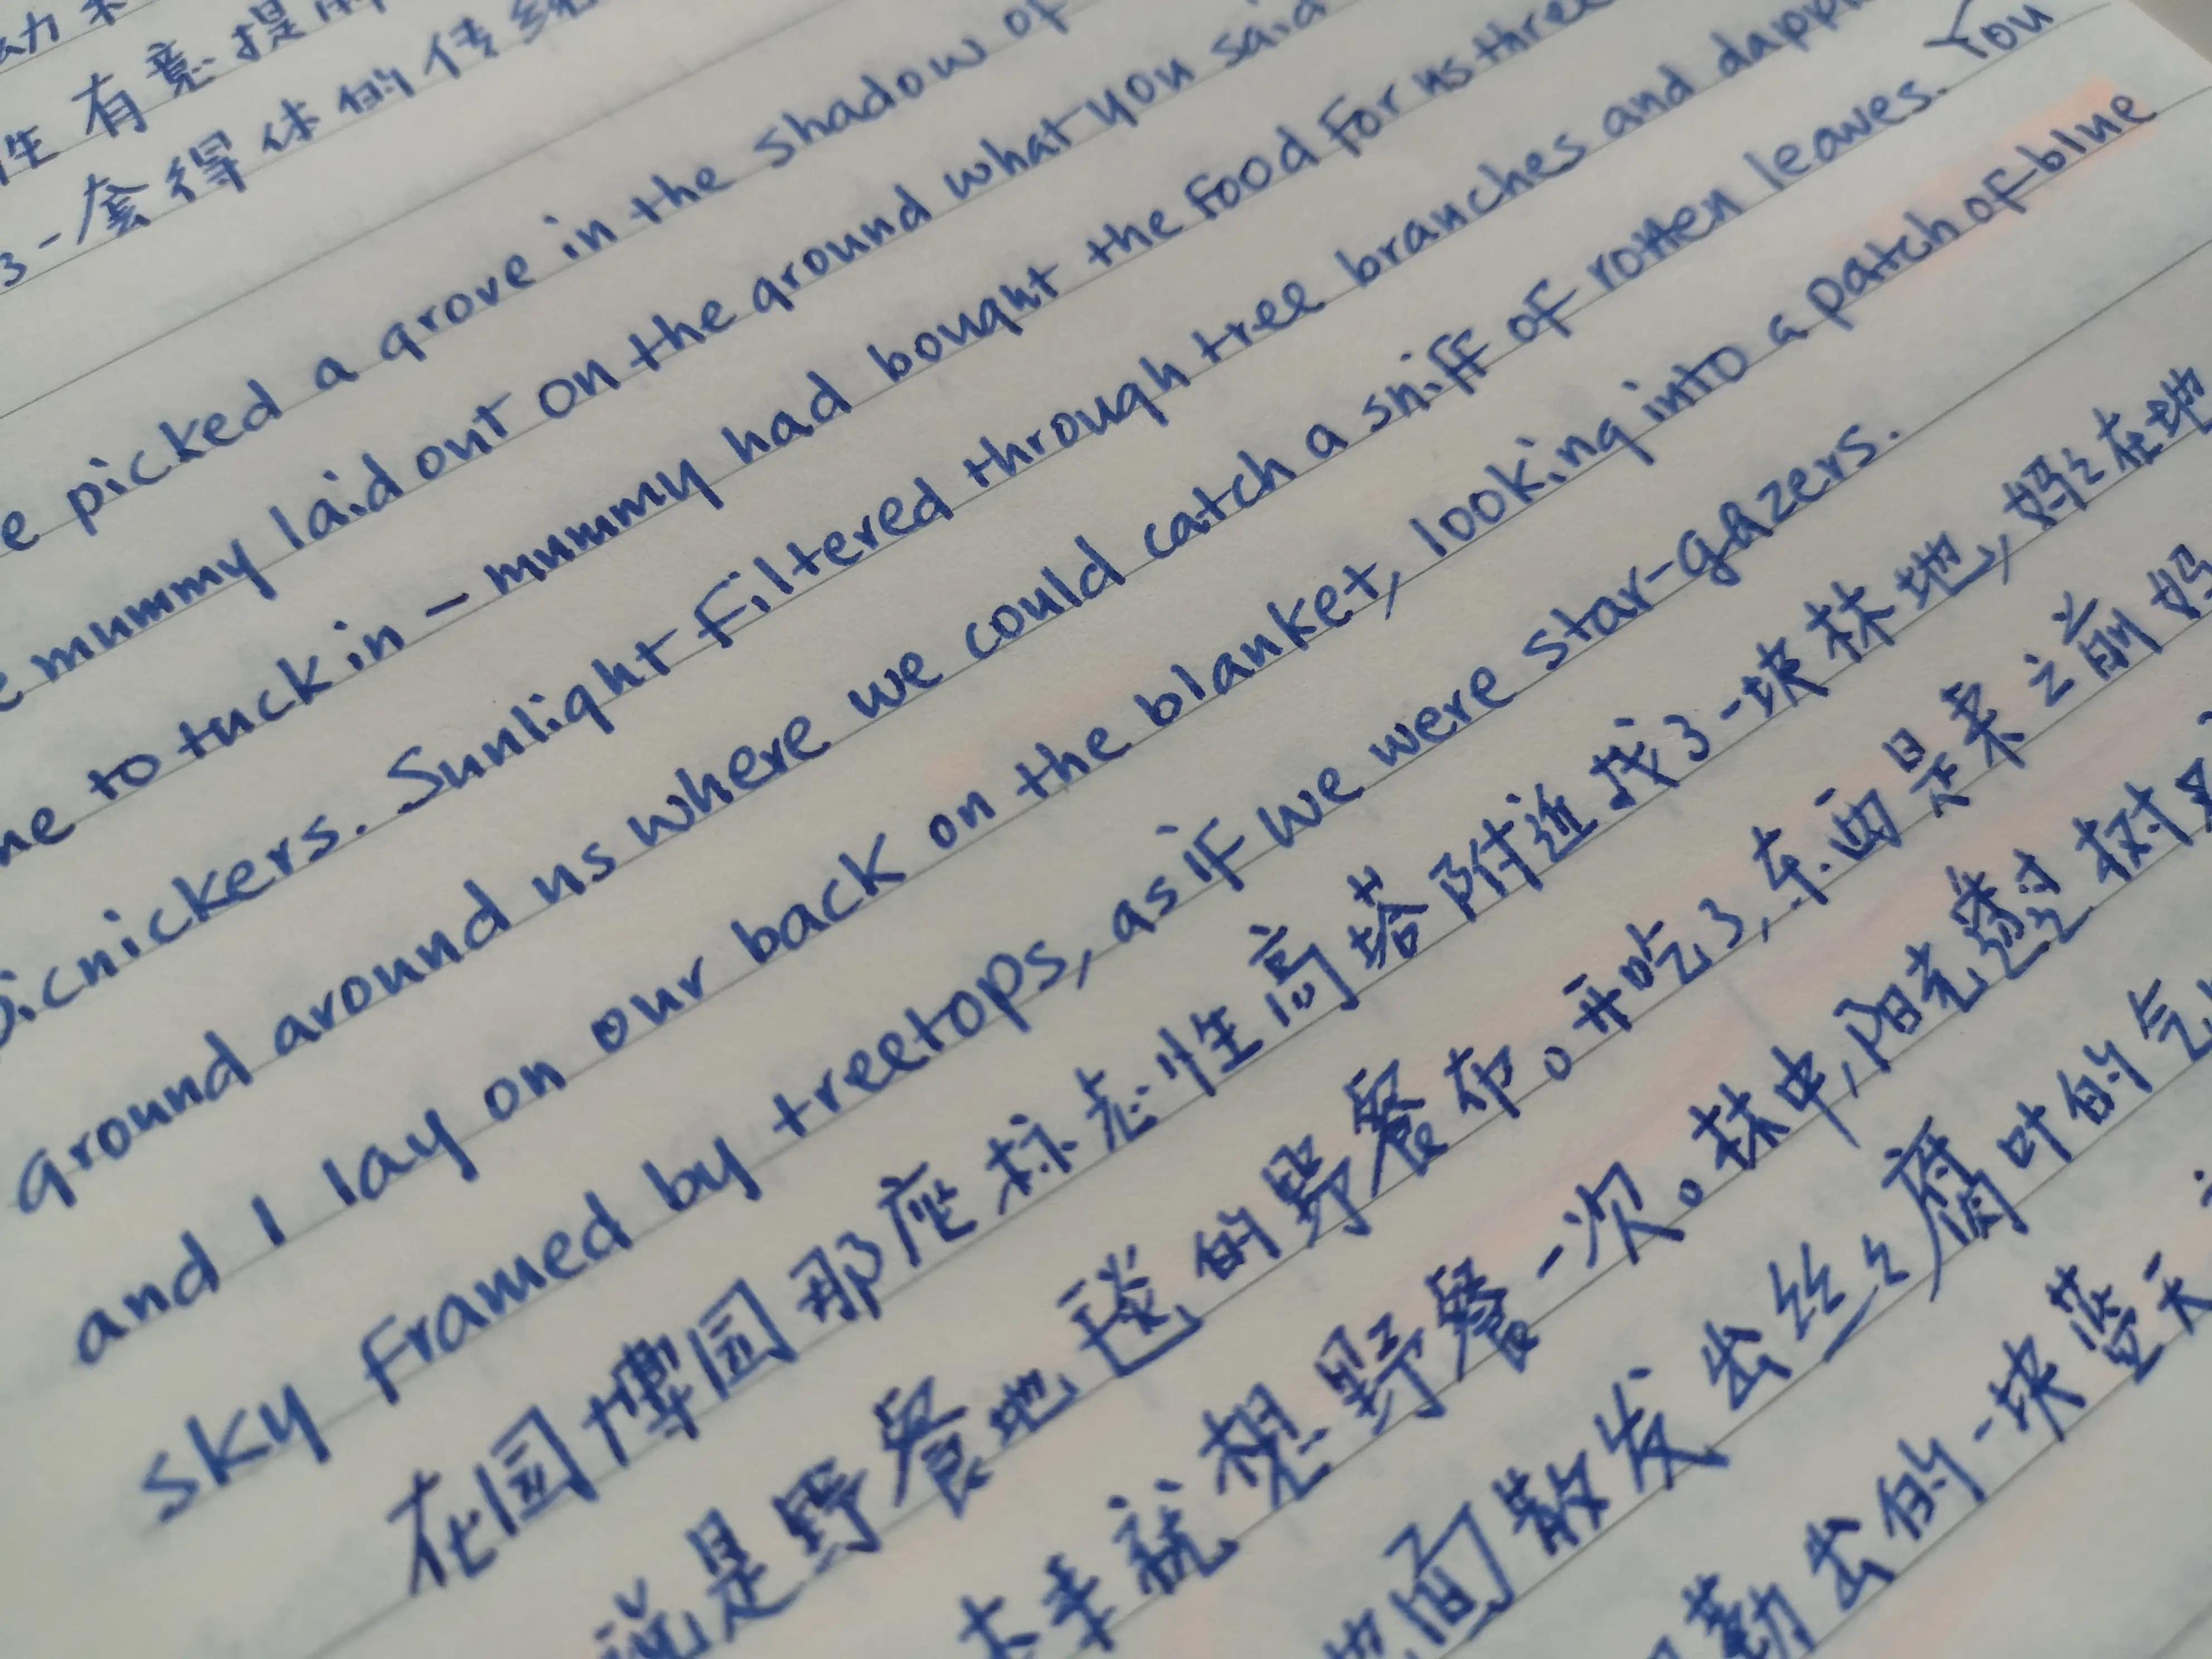 性有意提
3一套得体的传统
picked a grove in the shadow of
mummy laid out on the ground what you said
to tuck in – mummy had bought the food for us three
picnickers. Sunlight filtered through tree branches and
ground around us where we could catch a sniff of rotten leaves. You
and I lay on our back on the blanket, looking into a patch of blue
sky framed by treetops, as if we were star-gazers.
在园博园那座标志性高塔附近找了一块林地,妈々在地
说是野餐地毯的野餐布。开吃了,东西是来之前妈
本来就想野餐一次。林中,阳光透过树
地面散发出丝々腐叶的气
勒出的一块蓝天